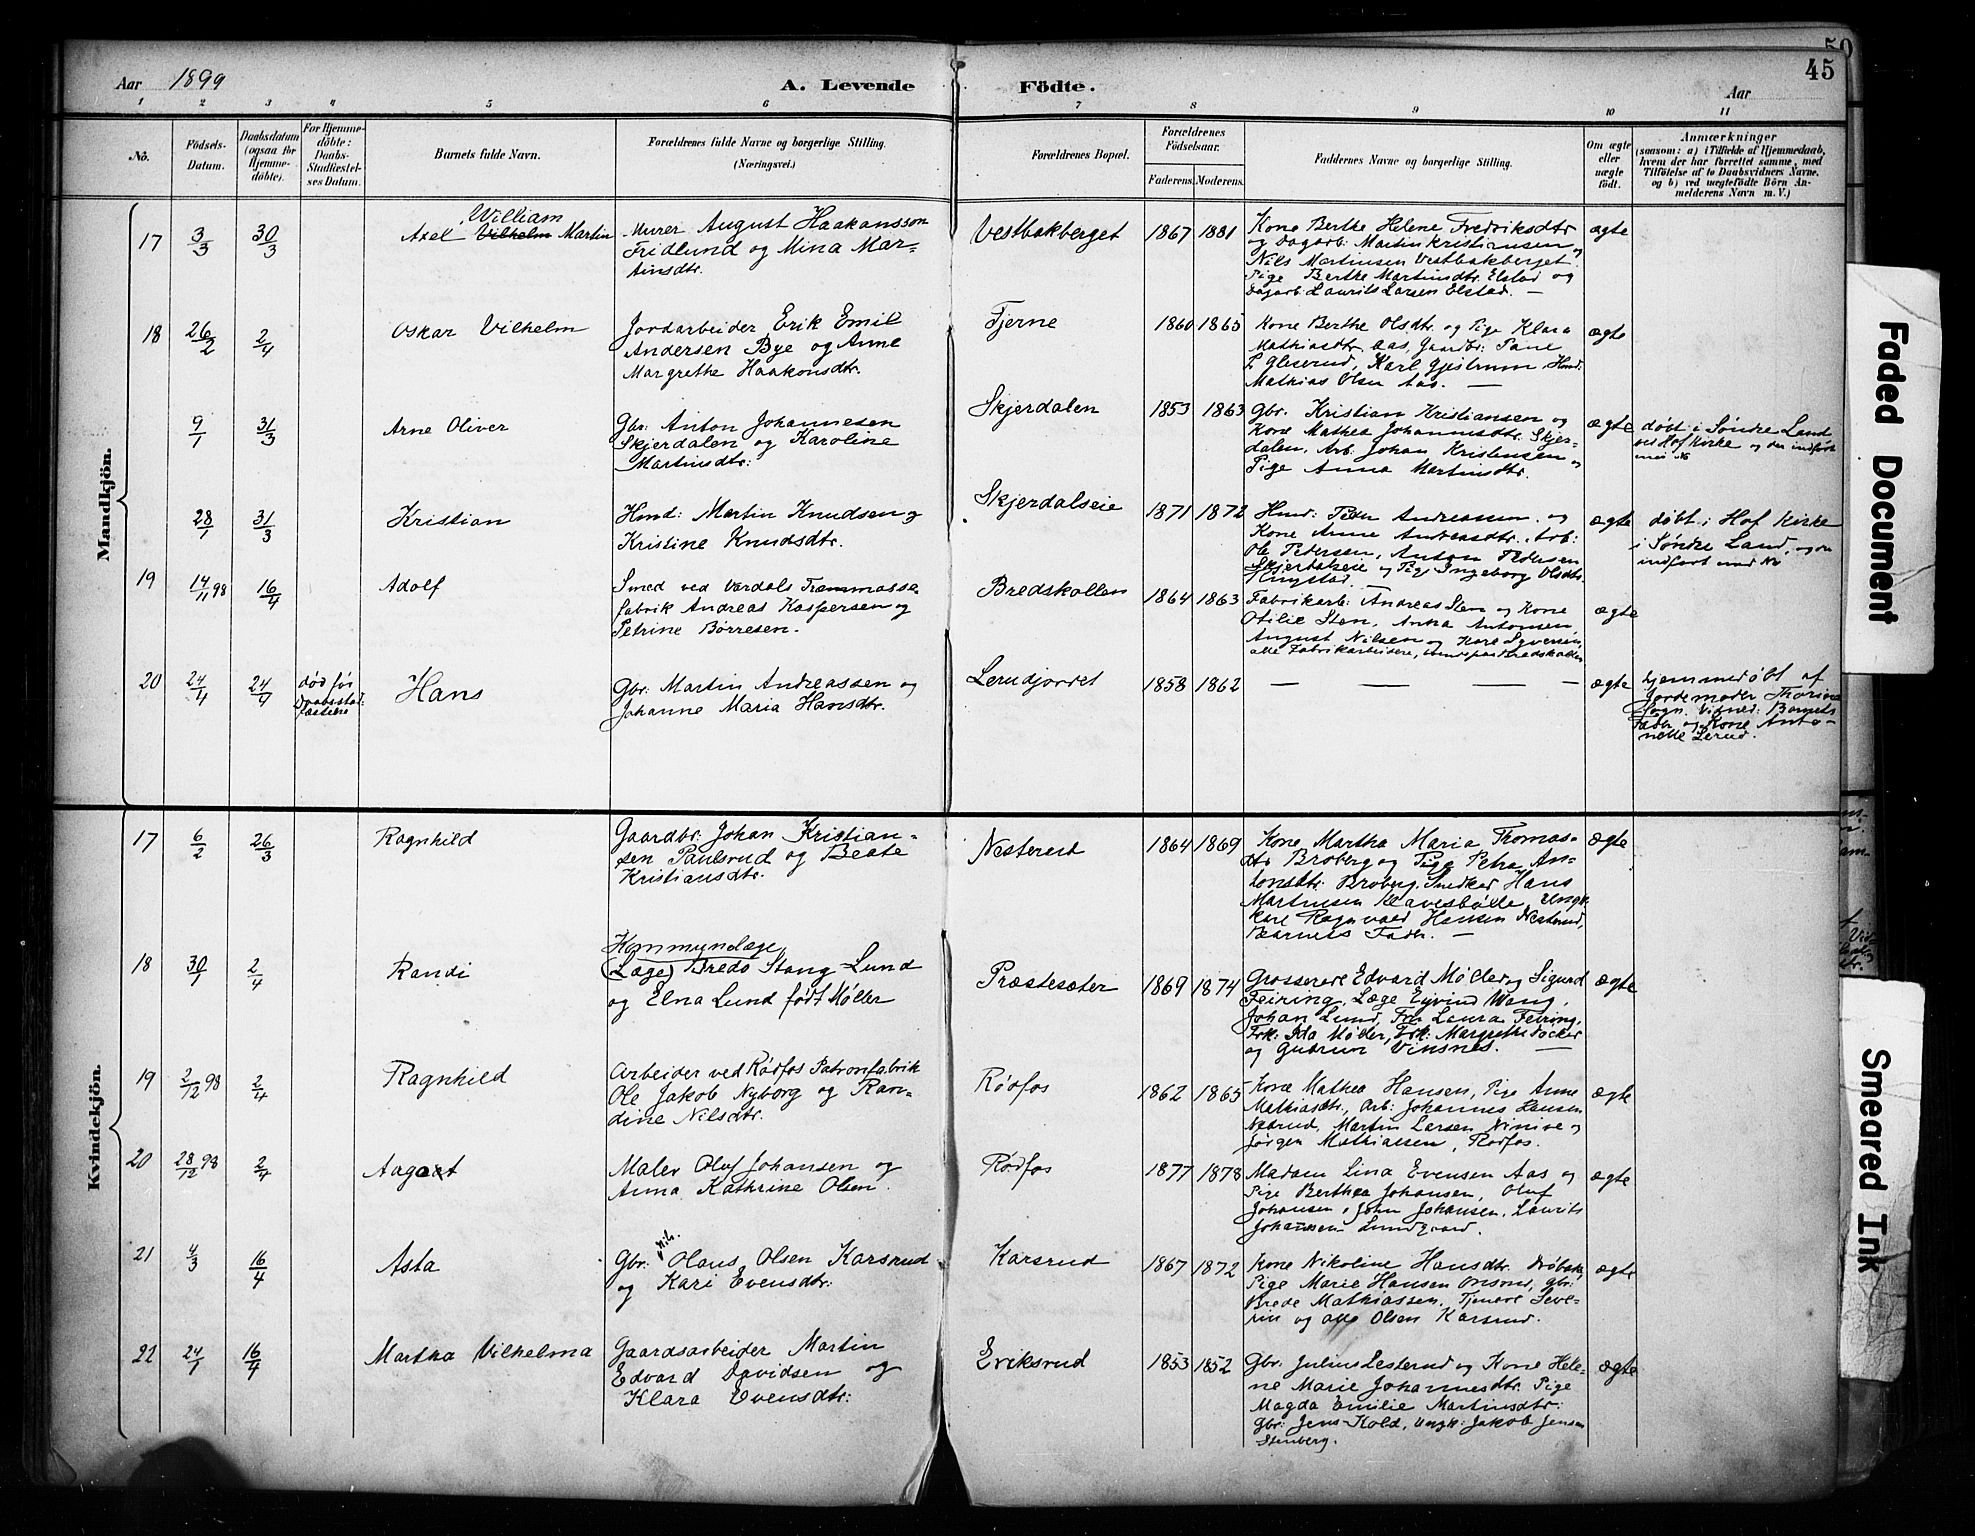 50
45
Aar 1899
A. Levende
Födte.
Aar
1 2 3 4 5 6 7 8 9 10 11
No.
Födsels-Datum.
Daabsdatum (ogsaa for Hjemmedöbte).
For Hjemmedöbte: Daabs-Stadfæstelses Datum.
Barnets fulde Navn.
Forældrenes fulde Navne og borgerlige Stilling.
(Næringsvei.)
Forældrenes Bopæl.
Forældrenes Födselsaar.
Faderens. Moderens.
Faddernes Navne og borgerlige Stilling.
Om ægte eller uægte födt.
Anmærkninger
(saasom: a) i Tilfælde af Hjemmedaab, hvem der har forrettet samme, med Tilföielse af to Daabsvidners Navne, og b) ved uægtefödte Börn Anmelderens Navn m. V.)
Mandkjön.
17 3/3 30/3
William
Axel Vilhelm Martin
Murer August Haakansson
Fridlund og Mina Mar-
tinsdtr.
Vestbakberget
1867 1881
Kone Berthe Helene Fredriksdtr
og Dagarb. Martin Kristiansen og
Nils Martinsen Vestbakberget
Pige Berthe Martinsdtr. Elstad og
Dagarb. Laurits Larsen Elstad. —
ægte
18 26/2 2/4
Oskar Vilhelm
Jordarbeider Erik Emil
Andersen Bye og Anne
Margrethe Haakonsdtr.
Tjerne
1860 1865
Kone Berthe Olsdtr. og Pige Klara
Mathiasdtr. Aas, Gaardbr.
Karl Gjestrum
Mathias Olsen Aas. —
ægte
9/1 31/3
Arne Oliver
Gbr. Anton Johannesen
Skjerdalen og Karoline
Martinsdtr.
Skjerdalen
1853 1863
Gbr. Kristian Kristiansen og
Kone Mathea Johannisdtr. Skjer-
dalen, Arb. Johan Kristensen og
Pige Anna Martinsdtr.
ægte
døbt i Søndre Land
ved Hof Kirke og der indført
28/1 31/3
Kristian
Hmd: Martin Knudsen og
Kristine Knudsdtr.
Skjerdalseie
1871 1872
Hmd: Peder Andreassen og
Kone Anne Andreasdtr. Arb:
Ole Pedersen, Anton Pedersen
Skjerdalseie og Pige Ingeborg Olsdtr.
ægte
døbt i Hof Kirke
i Søndre Land, og der
indført med No
19 14/11 98 16/4
Adolf
Smed ved Vardals Træmasse
fabrik Andreas Kaspersen og
Petrine Børresen.
Bredskallen
1864 1863
Fabrikarb: Andreas Sten og Kone
Otilie Sten, Anna Antonsen
August Nilsen og Karl Syversen,
alle Fabrikarbeidere,
ægte
20 24/4 24/4
død før
Daabsstad-
fæstelse
Hans
Gbr: Martin Andreassen og
Johanne Maria Hansdtr.
Lerudjordet
1858 1862
— — — —
ægte
hjemmedøbt af
Jordemoder Thorine
Sogn. Vidner: Barnets
Fader og Kone Anto-
nette Lerud.
Kvindekjön.
17 6/2 26/3
Ragnhild
Gaardbr: Johan Kristian-
sen Paulsrud og Beate
Kristiansdtr.
Nesterud
1864 1869
Kone Martha Maria Thomas-
dtr. Broberg og Pige Petra An-
tonsdtr. Broberg. Snedker Hans
Martinsen Ungk.
Karl Ragnvald Hansen Nesterud,
Barnets Fader. —
ægte
18 30/1 2/4
Randi
Kommunelæge
(Læge) Bredo Stang-Lund
og Elna Lund født Møller
Præstesæter
1869 1874
Grosserere Edvard Møller og Sigurd
Feiring, Læge Eyvind Wang,
Johan Lund, Fru Laura Feiring,
Frk: Ida Møller, Frk: Margrethe Døcker
og Gudrun Vinsnes. —
ægte
19 2/12 98 2/4
Ragnhild
Arbeider ved Rødfos Patronfabrik
Ole Jakob Nyborg og Ran-
dine Nilsdtr.
Rødfos
1862 1865
Kone Mathea Hansen, Pige Anne
Mathiasdtr., Arb: Johannes Hansen
Næsrud, Martin Larsen Ninive og
Jørgen Mathiassen, Rødfos.
ægte
20 28/12 98 2/4
Aagot
Maler Oluf Johansen og
Anna Kathrine Olsen.
Rødfos
1877 1878
Madam Lina Evensen Aas og
Pige Berthea Johansen, Oluf
Johansen, John Johansen, Laurits
Johansen Lundgaard.
ægte
21 4/3 16/4
Asta
Gbr: Olaus Olsen Karsrud
og Kari Evensdtr.
Karsrud
1867 1872
Kone Nikoline Hansdtr.
Pige Marie Hansen Onsrud, Gbr:
Brede Mathiassen, Tjenere Seve-
rin og Otto Olsen Karsrud.
ægte
22 24/1 16/4
Martha Vilhelma
Gaardsarbeider Martin
Edvard Davidsen og
Klara Evensdtr:
Eriksrud
1853 1852
Gbr: Julius Lesterud og Kone Hele-
ne Marie Johannesdtr. Pige
Magda Emilie Martinsdtr:
Gbr: Jens Kold, Ungk: Jakob Jensen
Stenberg.
ægte
Faded Document
Smeared Ink